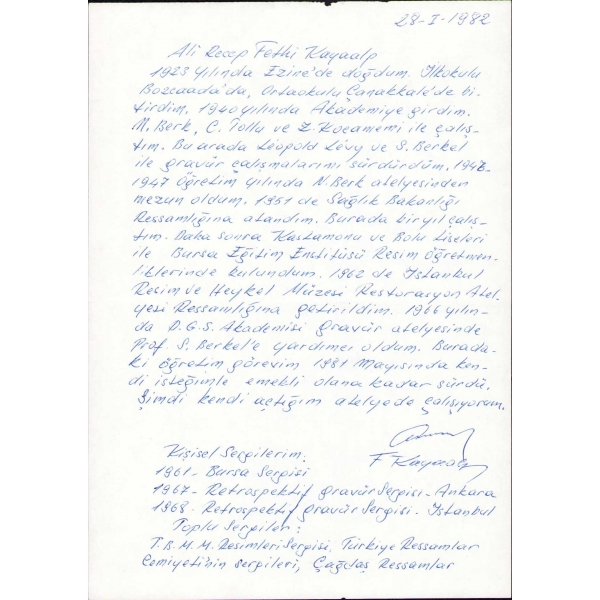 28-I-1982
Ali Recep Fethi Kayaalp
1923 yılında Ezine'de doğdum. İlkokulu
Bozcaada'da, Ortaokulu Çanakkale'de bi-
tirdim. 1940 yılında Akademiye girdim.
N. Berk, C. Tollu ve Z. Kocamemi ile çalış-
tım. Bu arada Léopold Lévy ve S. Berkel
ile gravür çalışmalarını sürdürdüm. 1946-
1947 öğretim yılında N. Berk atelyesinden
mezun oldum. 1951 de Sağlık Bakanlığı
Ressamlığına atandım. Burada bir yıl çalış-
tım. Daha sonra Kastamonu ve Bolu Liseleri
ile Bursa Eğitim Enstitüsü Resim öğretmen-
liklerinde bulundum. 1962 de İstanbul
Resim ve Heykel Müzesi Restorasyon Atel-
yesi Ressamlığına getirildim. 1966 yılın-
da D.G.S. Akademisi gravür atelyesinde
Prof S. Berkel'e yardımcı oldum. Burada-
ki öğretim görevim 1981 Mayısında ken-
di isteğimle emekli oluna kadar sürdü.
Şimdi kendi açtığım atelyede çalışıyorum.
F Kayaalp
Kişisel Sergilerim:
1961 - Bursa Sergisi
1967 - Retrospektif gravür Sergisi - Ankara
1968 - Retrospektif gravür Sergisi - İstanbul
Toplu Sergiler:
T.B.M.M. Resimleri Sergisi, Türkiye Ressamlar
Cemiyeti'nin sergileri, Çağdaş Ressamlar